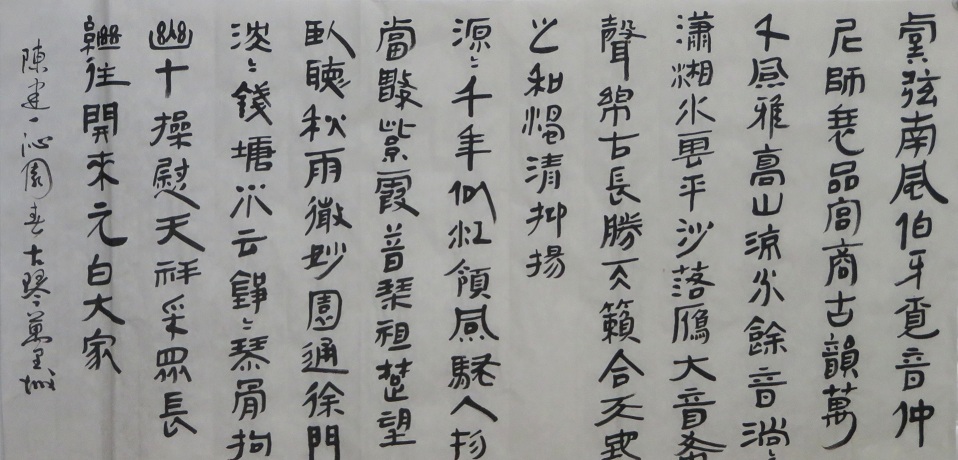 虞弦南風伯牙覓音仲
尼師襄品宮商古韻萬
千風雅高山流水餘音淌〻
瀟湘水雲平沙落鴈大音希
聲綿古長勝天籟合天
之和濁清抑揚
源〻千年似江領風騷人物
當紫霞普琴祖楚望
臥聽秋雨徽妙園通徐門
淡〻錢塘水云錚〻琴骨拘
幽十操慰天祥采眾長
繼往開來元白大家
陳建一沁園春古琴萬里